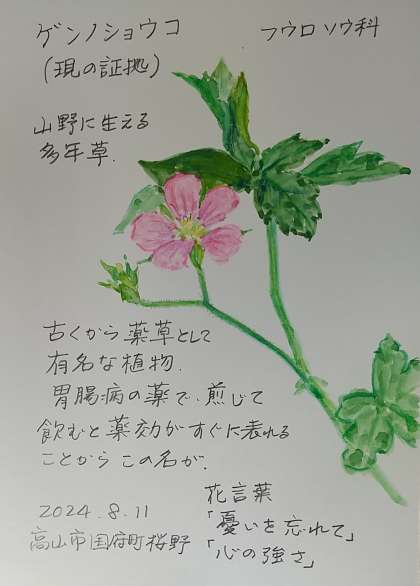 ゲンノショウコ フウロソウ科
(現の証拠)
山野に生える
多年草.
古くから薬草として
有名な植物.
胃腸病の薬で、煎じて
飲むと薬効がすぐに表れる
ことからこの名が.
花言葉
「憂いを忘れて」
「心の強さ」
2024.8.11
高山市国府町桜野